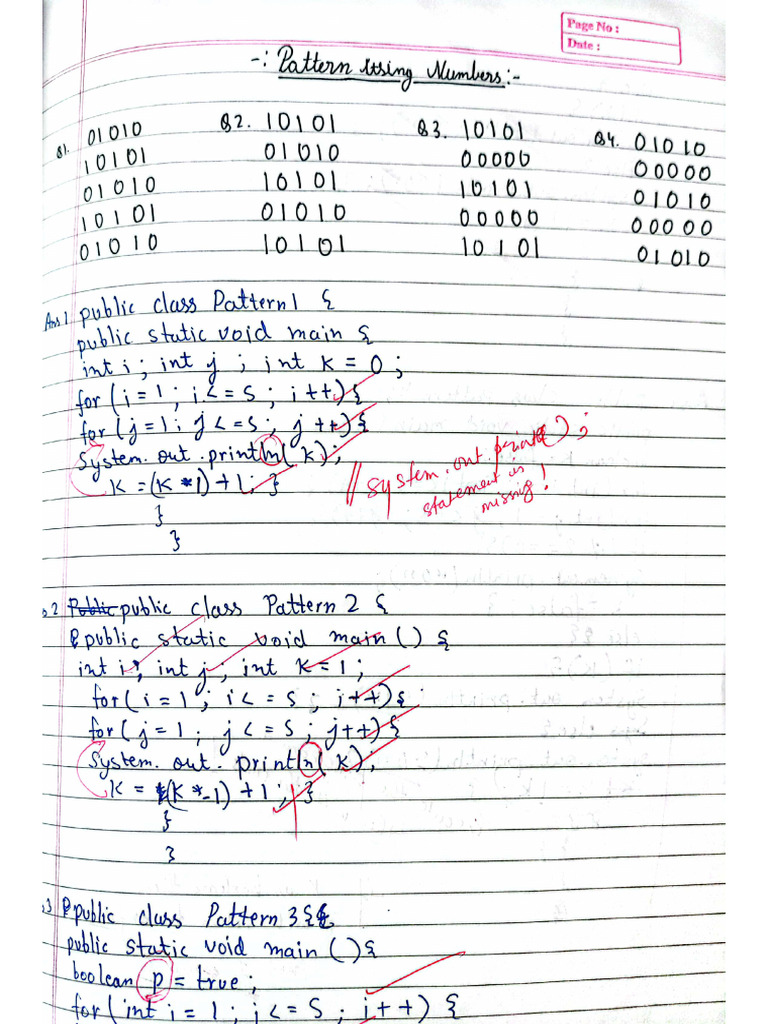 Page No :
Date :
-: Pattern Using Numbers:-
Q1. 01010 Q2. 10101 Q3. 10101 Q4. 01010
10101 01010 00000 00000
01010 10101 10101 01010
10101 01010 00000 00000
01010 10101 10101 01010
Ans 1. public class Pattern1 {
public static void main {
int i ; int j ; int K = 0 ;
for (i = 1 ; i <= 5 ; i ++) {
for (j = 1 ; j <= 5 ; j ++) {
System. out . println( K) ;
K = (K * 1) + 1 ; }
}
}
// System . out . print( ) ;
statement is
missing !
2 public class Pattern 2 {
public static void main () {
int i ; int j ; int K = 1 ;
for ( i = 1 ; i <= 5 ; i++) {
for ( j = 1 ; j <= 5 ; j++) {
System. out . println( K) ;
K = (K * -1) + 1 ; }
}
}
.3 public class Pattern 3 {
public static void main () {
boolean p = true ;
for ( int i = 1 ; i <= 5 ; i ++) {